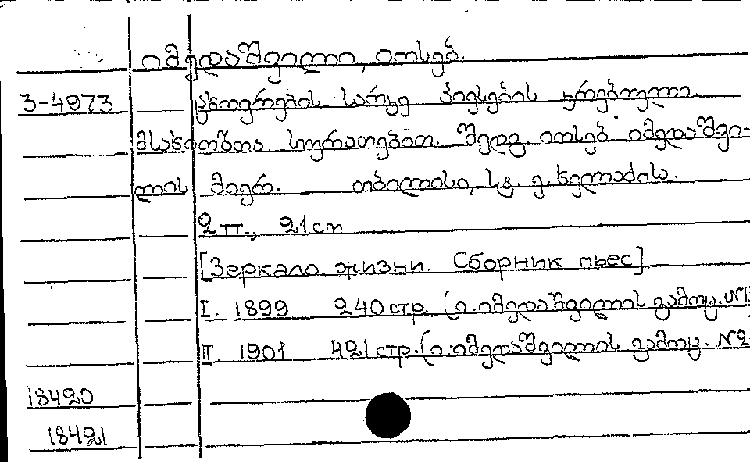 იმედაშვილი, იოსებ.
3-4973 ცხოვრების სარკე პიესების კრებული
მსახიობთა სურათებით. შედგ. იოსებ იმედაშვი-
ლის მიერ. თბილისი, სტ. ე. ხელაძისა.
2 т., 21 см
[Зеркало жизни. Сборник пьес]
I. 1899 240 стр. (ი. იმედაშვილის გამოც. №1
II. 1901 421 стр. (ი. იმედაშვილის გამოც. №2
18420
18421